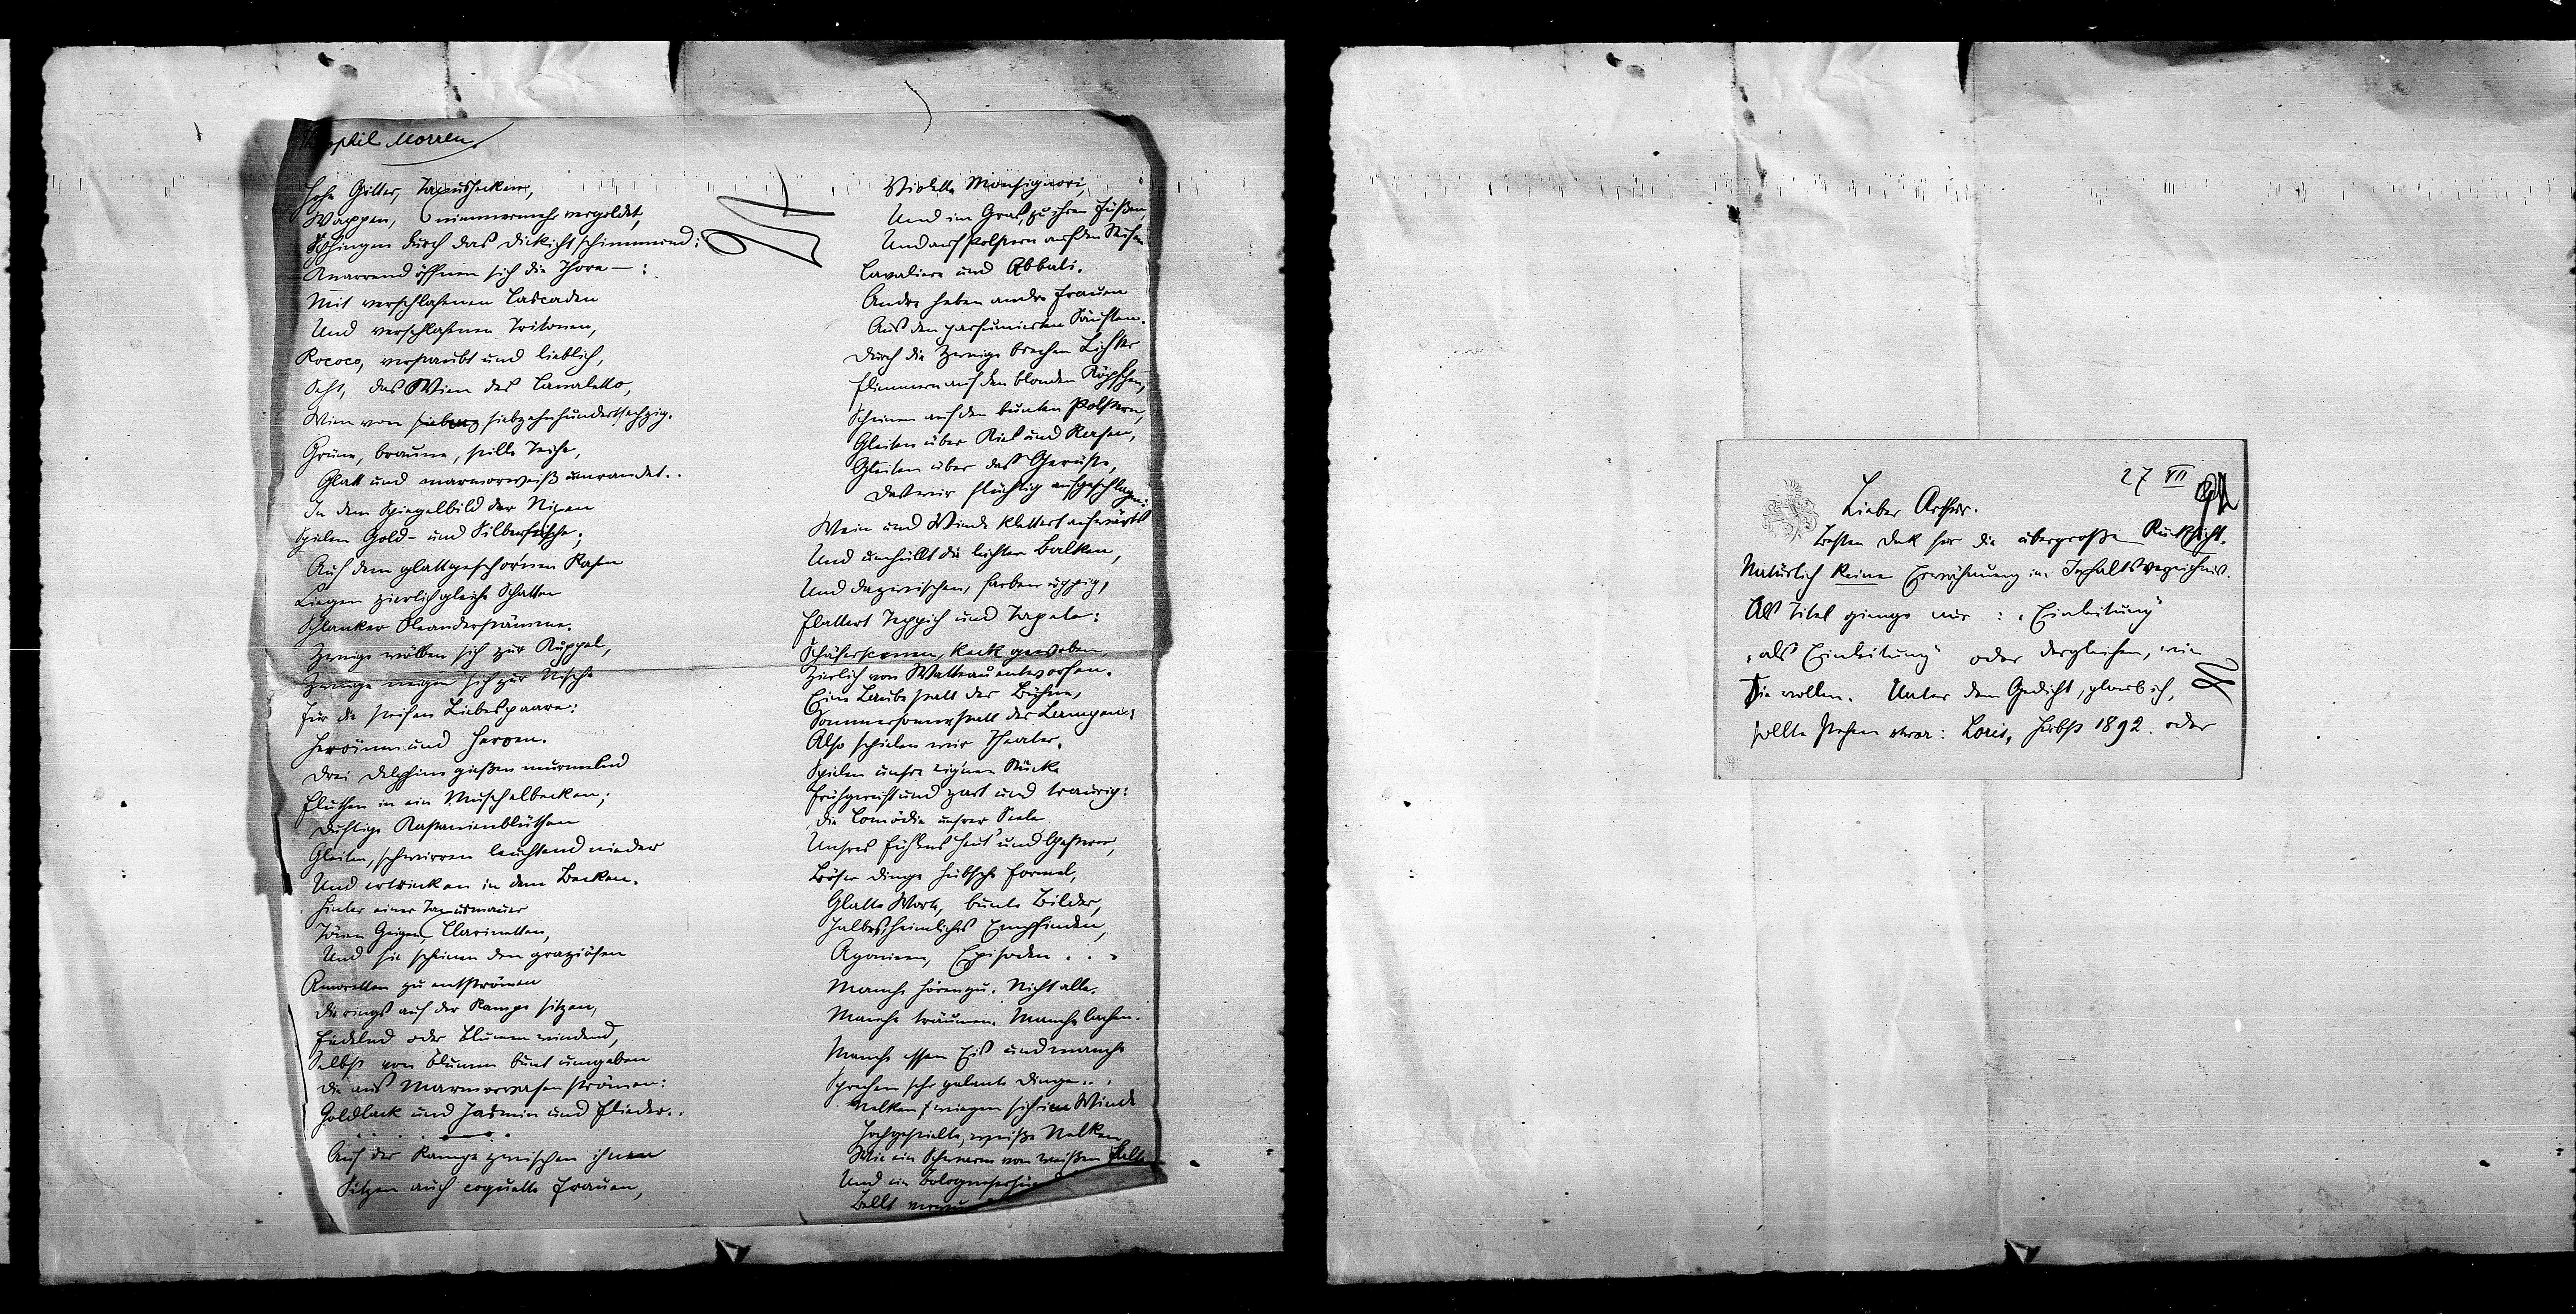 Theophil Morren.
Hohe Gitter, Taxushecken,
Wappen, nimmermehr vergoldet,
Sphinxen durch das Dickicht schimmernd:
– Knarrend öffnen sich die Thore – :
Mit verschlafenen Cascaden
Und verschlafenen Tritonen,
Rococo, verstaubt und lieblich,
Seht, das Wien des Canaletto,
Wien von siebzehnhundertsechzig.
Grüne, braune, stille Teiche,
Glatt und marmorweiß umrandet..
In dem Spiegelbild der Nixen
Spielen Gold- und Silberfische;
Auf dem glattgeschor'nen Rasen
Liegen zierlich gleiche Schatten
Schlanker Oleanderstämme.
Zweige wölben sich zur Kuppel,
Zweige neigen sich zur Nische
Für die steifen Liebespaare:
Heroinen und Heroen.
Drei Delphine gießen murmelnd
Fluthen in ein Muschelbecken;
Duftige Kastanienblüthen
Gleiten, schwirren leuchtend nieder
Und ertrinken in dem Becken.
Hinter einer Taxusmauer
Tönen Geigen, Clarinetten,
Und sie scheinen den graziösen
Amoretten zu entströmen
Die rings auf der Rampe sitzen,
Fiedelnd oder Blumen windend,
Selbst von Blumen bunt umgeben
Die aus Marmorvasen strömen:
Goldlack und Jasmin und Flieder..
Auf der Rampe zwischen ihnen
Sitzen auch coquette Frauen,
Violette Monsignori,
Und im Gras, zu ihren Füßen,
Und auf Polstern auf den Stufen
Cavaliere und Abbati.
Andre heben andre Frauen
Aus den parfumierten Sänften.
Durch die Zweige brechen Lichter
Flimmern auf den blonden Köpfchen,
Scheinen auf den bunten Polstern,
Gleiten über Kies und Rasen,
Gleiten über das Gerüste,
Das wir flüchtig aufgeschlagen:
Wein und Winde klettert aufwärts
Und umhüllt die lichten Balken,
Und dazwischen, farbenüppig,
Flattert Teppich und Tapete:
Schäferscenen, keck gewoben,
Zierlich von Watteau entworfen.
Eine Laube statt der Bühne,
Sommersonne statt der Lampen:
Also spielen wir Theater.
Spielen unsre eig'nen Stücke
Frühgereift und zart und traurig:
Die Comödie unsrer Seele
Unsres Fühlens Heut' und Gestern,
Böser Dinge hübsche Formel,
Glatte Worte, bunte Bilder,
Halbes, heimliches Empfinden,
Agonieen, Episoden . . .
Manche hören zu. Nicht alle.
Manche träumen. Manche lachen.
Manche essen Eis und manche
Sprechen sehr galante Dinge . . .
Nelken wiegen sich im Winde
Hochgestielte, weiße Nelken
Wie ein Schwarm von weißen Falte
Und ein Bologneserhü
Bellt
27 VII
Lieber Arthur.
Besten Dank für die übergroße Rücksicht.
Natürlich keine Erwähnung im Inhaltsverzeichnis.
Als Titel gienge nur : „Einleitung“
„als Einleitung“ oder dergleichen, wie
Sie wollen. Unter dem Gedicht, glaub ich,
sollte stehen etwa: Loris, Herbst 1892. oder